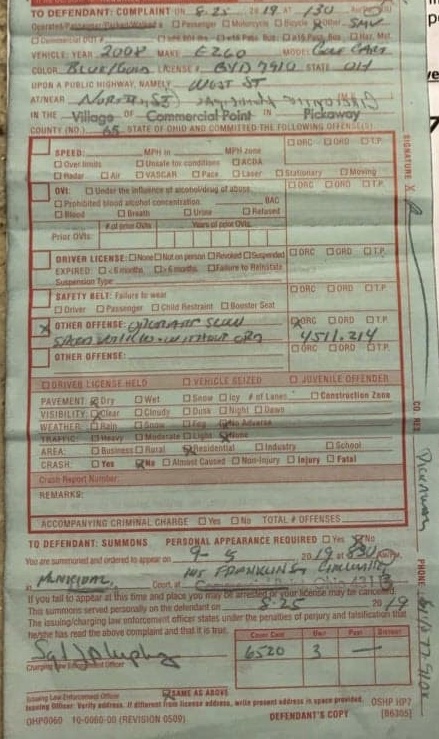 TO DEFENDANT: COMPLAINT ON 8-25 2019 AT 130
Passenger Motorcycle Bicycle Other SMV
Commercial DOT # Haz. Mat.
VEHICLE: YEAR 2008 MAKE EZGO MODEL Golf Cart
COLOR Blue/Gold LICENSE # BYD 7910 STATE OH
UPON A PUBLIC HIGHWAY, NAMELY West St
AT/NEAR
IN THE Village OF Commercial Point IN Pickaway
COUNTY (NO.) 65 STATE OF OHIO AND COMMITTED THE FOLLOWING OFFENSE(S)
SPEED: MPH in MPH zone ORC ORD T.P.
Over limits Unsafe for conditions ACDA
Radar Air VASCAR Pace Laser Stationary Moving
OVI: Under the influence of alcohol/drug of abuse ORC ORD T.P.
Prohibited blood alcohol concentration BAC
Blood Breath Urine Refused
# of prior OVIs Years of prior OVIs
Prior OVIs:
DRIVER LICENSE: None Not on person Revoked Suspended ORC ORD T.P.
EXPIRED: < 6 months > 6 months Failure to Reinstate
Suspension Type:
SAFETY BELT: Failure to wear ORC ORD T.P.
Driver Passenger Child Restraint Booster Seat
X OTHER OFFENSE: Operate Slow X ORC ORD T.P.
Speed Vehicles without 4511.214
OTHER OFFENSE: ORC ORD T.P.
DRIVER LICENSE HELD VEHICLE SEIZED JUVENILE OFFENDER
PAVEMENT: X Dry Wet Snow Icy # of Lanes Construction Zone
VISIBILITY: X Clear Cloudy Dusk Night Dawn
WEATHER: Rain Snow Fog X No Adverse
TRAFFIC: Heavy Moderate Light X None
AREA: Business Rural X Residential Industry School
CRASH: Yes X No Almost Caused Non-Injury Injury Fatal
Crash Report Number:
REMARKS:
ACCOMPANYING CRIMINAL CHARGE Yes No TOTAL # OFFENSES
TO DEFENDANT: SUMMONS PERSONAL APPEARANCE REQUIRED Yes X No
You are summoned and ordered to appear on 9- 2019 at 830
in Municipal Court, at Franklin Circleville
If you fail to appear at this time and place you may be arrested or your license may be cancelled.
This summons served personally on the defendant on 8-25 2019
The issuing/charging law enforcement officer states under the penalties of perjury and falsification that
he/she has read the above complaint and that it is true.
Court Code Unit Post District
6520 3 —
Charging Law Enforcement Officer
Issuing Law Enforcement Officer X SAME AS ABOVE
Issuing Officer: Verify address. If different from license address, write present address in space provided.
OSHP HP7
OHP0060 10-0060-00 (REVISION 0509) DEFENDANT'S COPY [B6305]
SIGNATURE X
CO. RES.
PHONE